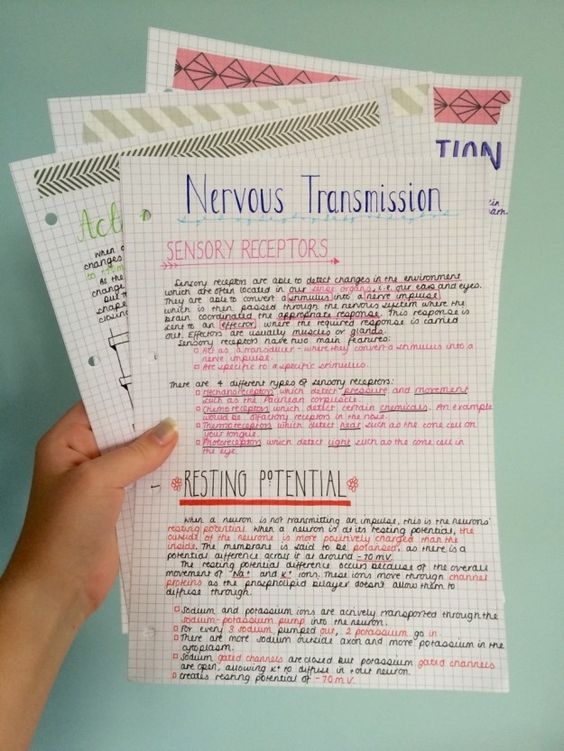 TION
Nervous Transmission
Act
SENSORY RECEPTORS
when a
changes
Sensory receptors are able to detect changes in the environment
which are often located in our sense organs, i.e. our ears and eyes.
They are able to convert a stimulus into a nerve impulse
which is then passed through the nervous system where the
brain coordinated the appropriate response. This response is
sent to an effector where the required response is carried
out. Effectors are usually muscles or glands.
Sensory receptors have two main features:
Act as a transducer - where they convert a stimulus into a
nerve impulse.
Are specific to a specific stimulus.
There are 4 different types of sensory receptors:
Mechanoreceptors which detect pressure and movement
such as the Pacinian corpuscle.
Chemoreceptors which detect certain chemicals. An example
would be olfactory receptors in the nose.
Thermoreceptors which detect heat such as the cone cell on
your tongue.
Photoreceptors which detect light such as the cone cell in
the eye.
RESTING POTENTIAL
When a neuron is not transmitting an impulse, this is the neurons'
resting potential. When a neuron is at its resting potential, the
outside of the neurone is more positively charged than the
inside. The membrane is said to be polarised, as there is a
potential difference across it of around -70 mV.
The resting potential difference occurs because of the overall
movement of Na+ and K+ ions. These ions move through channel
proteins as the phospholipid bilayer doesn't allow them to
diffuse through.
Sodium and potassium ions are actively transported through the
sodium-potassium pump into the neuron.
For every 3 sodium pumped out, 2 potassium go in.
There are more sodium outside axon and more potassium in the
cytoplasm.
Sodium gated channels are closed but potassium gated channels
are open, allowing K+ to diffuse in + out neuron.
Creates resting potential of -70 mV.